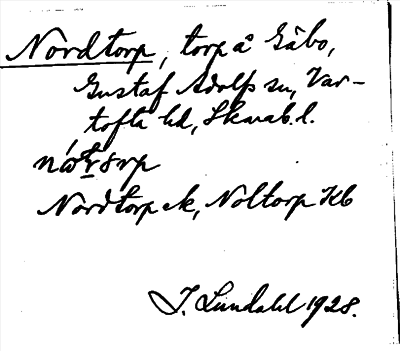 Nordtorp, torp å Gåbo,
Gustaf Adolfs sn, Var-
tofta hd, Skarab. l.
Nordtorp ek, Noltorp Kb
J. Lundahl 1928.